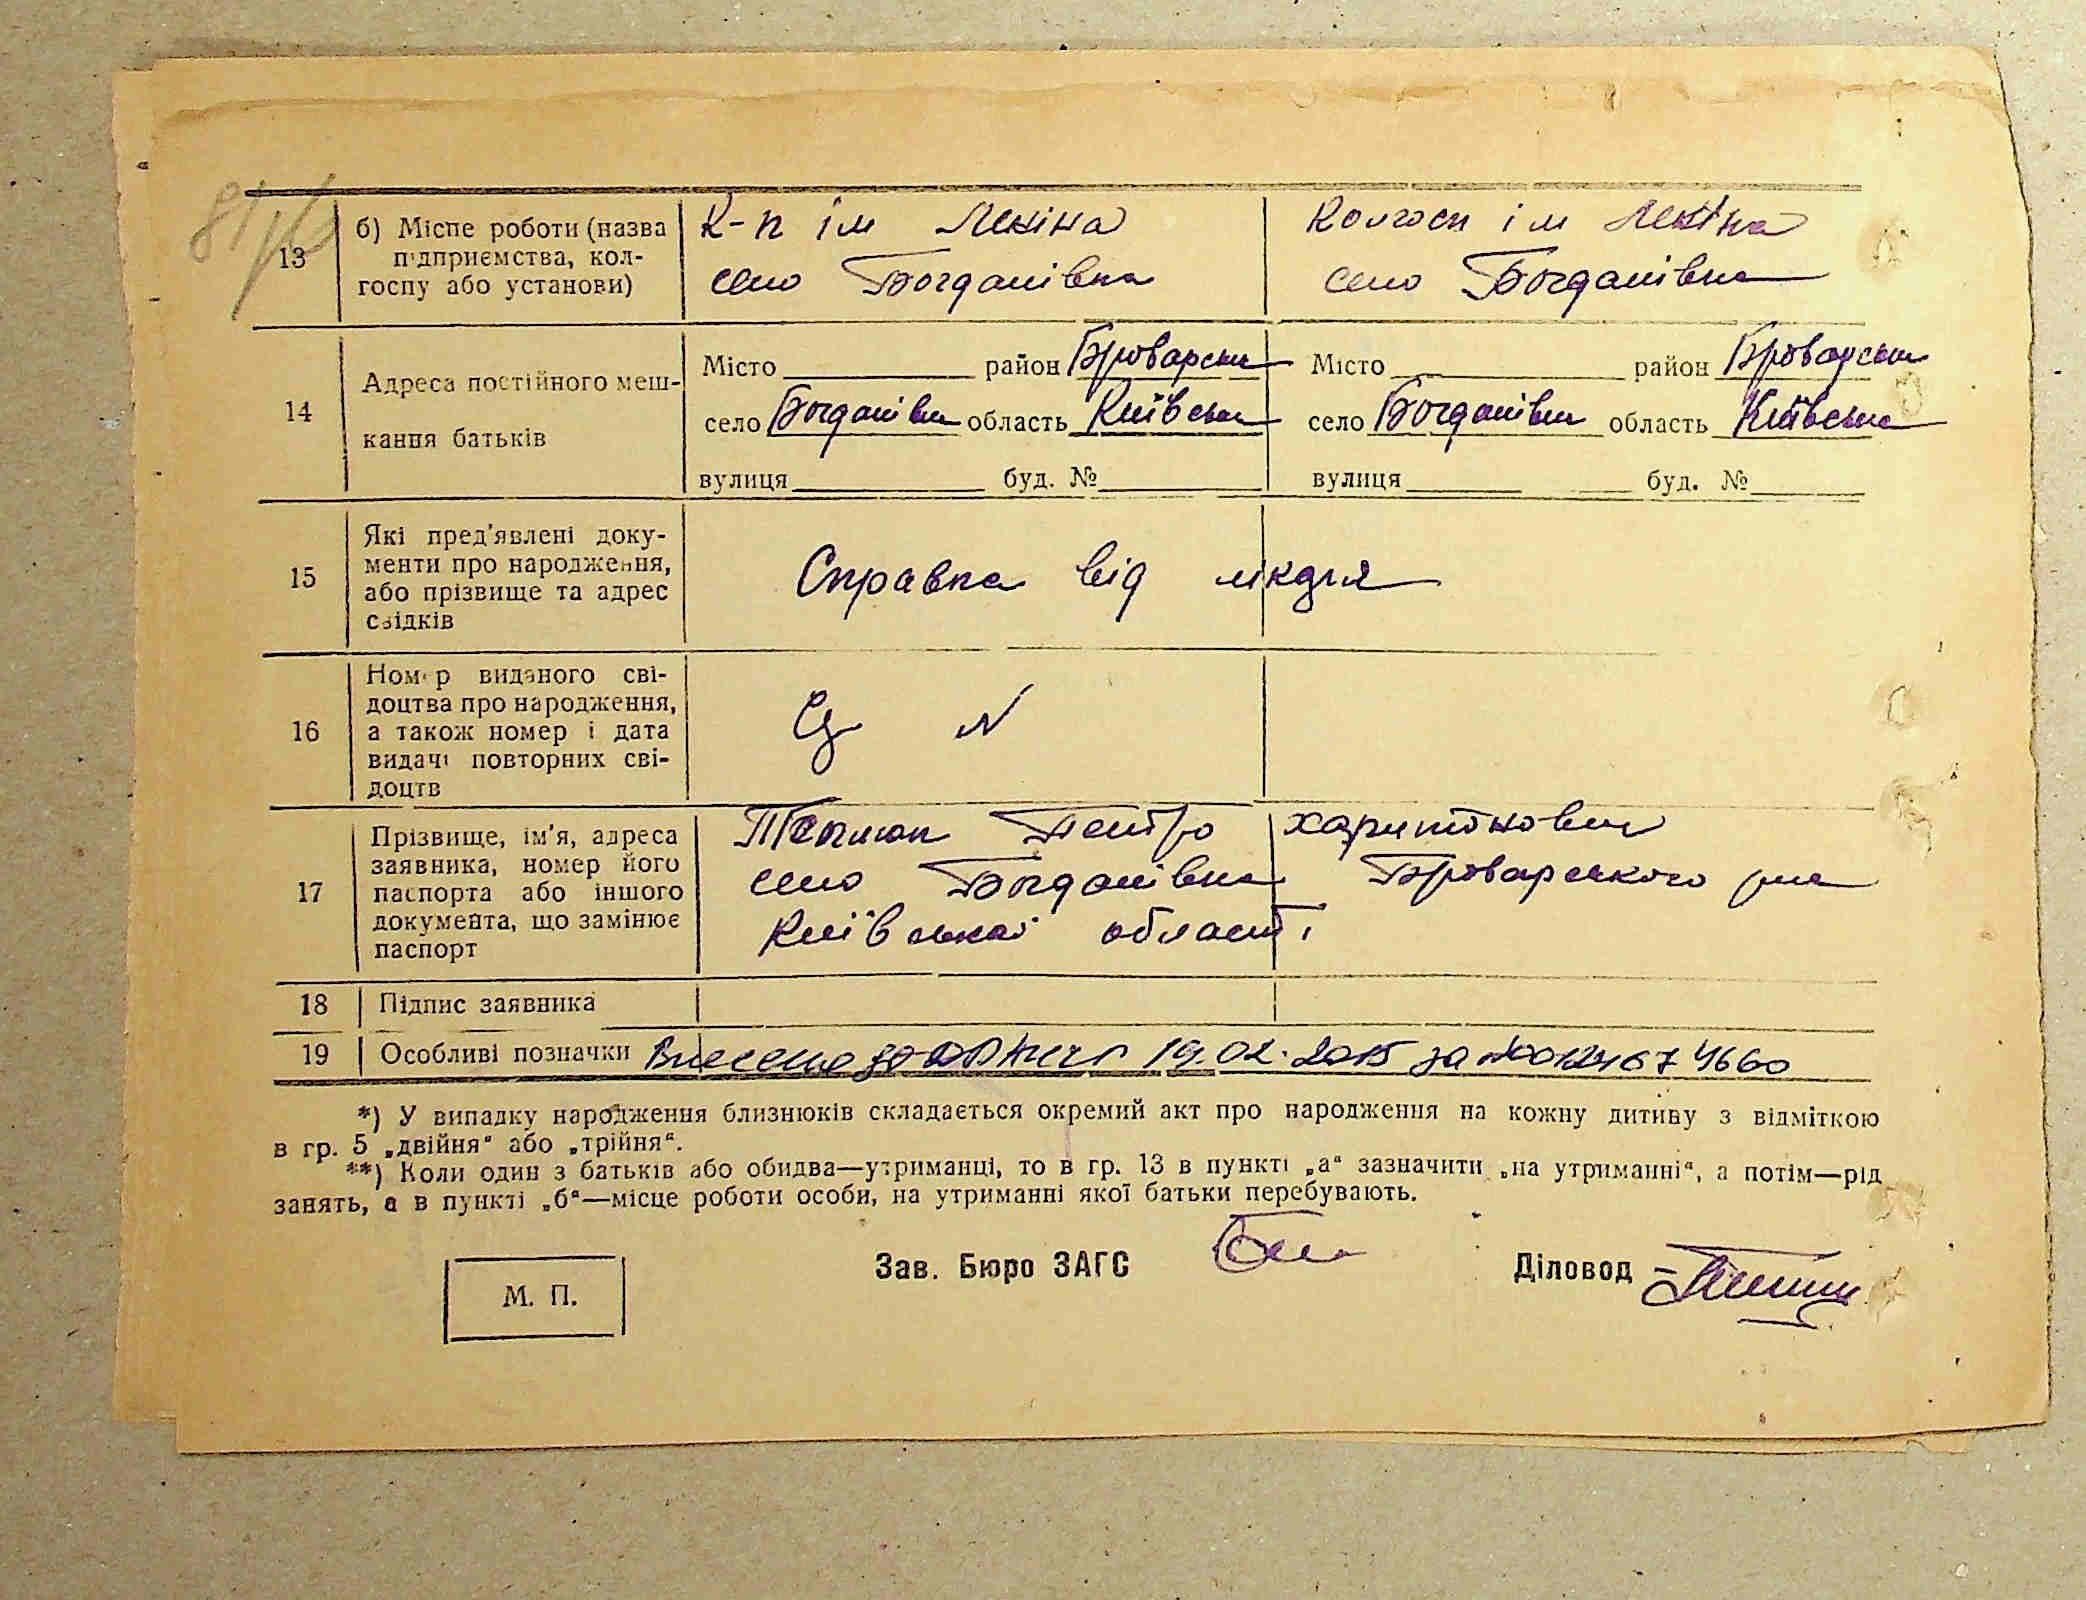 81/6
13 б) Місце роботи (назва К-п ім Леніна Колгосп ім Леніна
підприємства, кол-
госпу або установи) село Богданівка село Богданівка
Місто район Броварськ Місто район Броварськ
14 Адреса постійного меш-
кання батьків село Богданівка область Київська село Богданівка область Київська
вулиця буд. № вулиця буд. №
15 Які пред'явлені доку-
менти про народження, Справка від лікаря
або прізвище та адрес
свідків
16 Номер виданого сві-
доцтва про народження,
а також номер і дата N
видачі повторних сві-
доцтв
17 Прізвище, ім'я, адреса Петро Харитонович
заявника, номер його
паспорта або іншого село Богданівка Броварського р-на
документа, що замінює Київської області
паспорт
18 Підпис заявника
19 Особливі позначки Внесено до 19.02.2015 за №00124674660
*) У випадку народження близнюків складається окремий акт про народження на кожну дитину з відміткою
в гр. 5 „двійня“ або „трійня“.
**) Коли один з батьків або обидва—утриманці, то в гр. 13 в пункті „а“ зазначити „на утриманні“, а потім—рід
занять, а в пункті „б“—місце роботи особи, на утриманні якої батьки перебувають.
М. П. Зав. Бюро ЗАГС Діловод